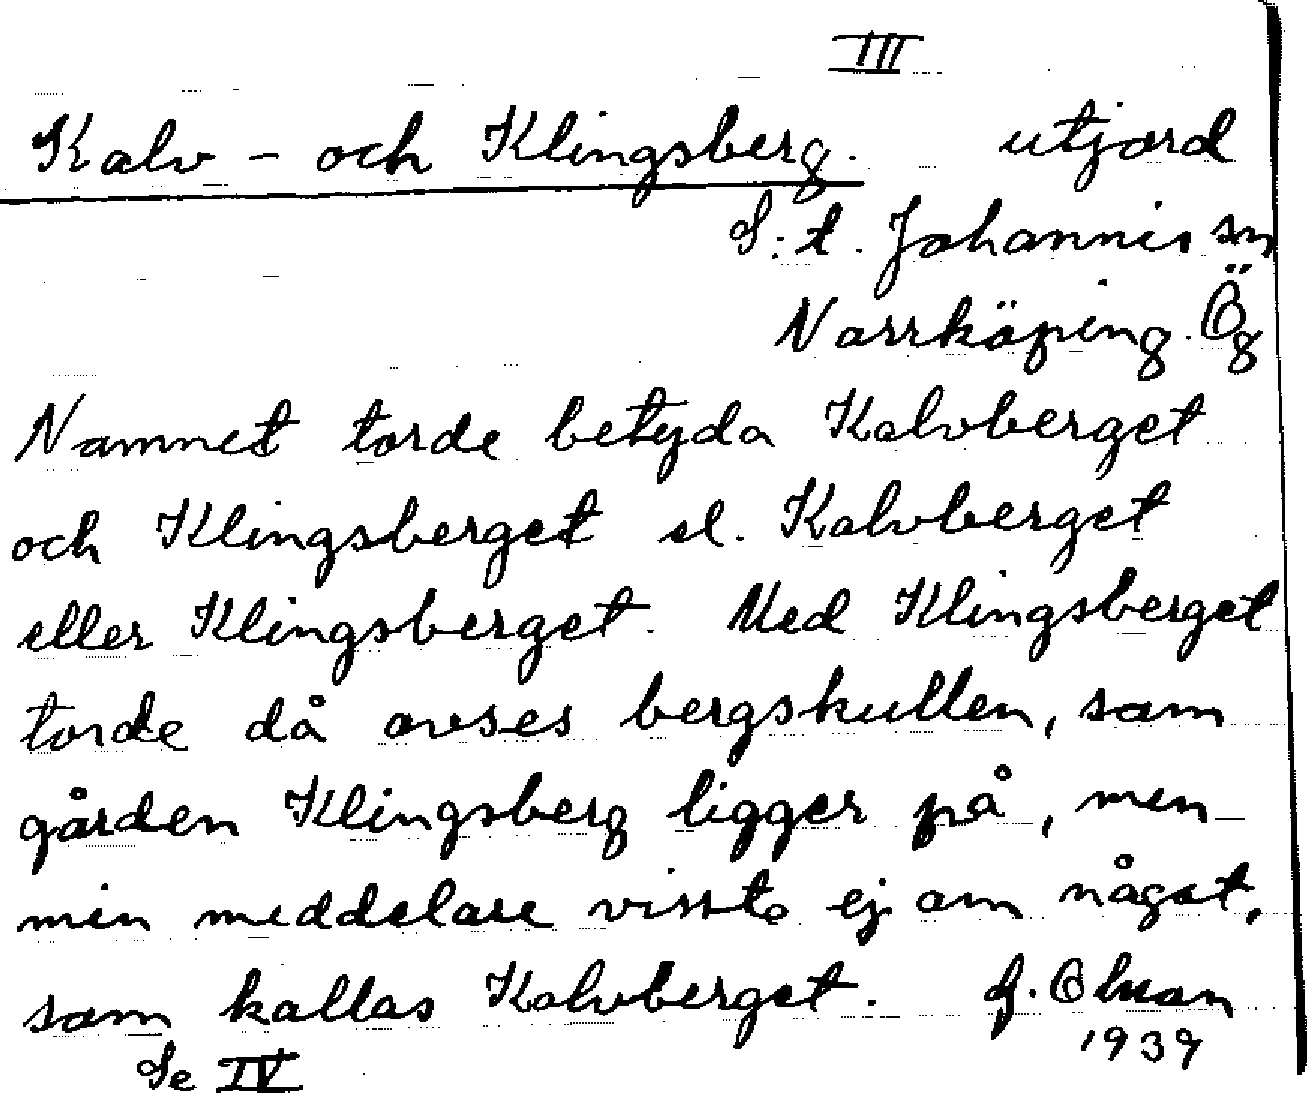 III
Kalv- och Klingsberg. utjord
S:t. Johannis sn
Norrköping. Ög
Namnet torde betyda Kalvberget
och Klingsberget el. Kalvberget
eller Klingsberget. Med Klingsberget
torde då avses bergskullen, som
gården Klingsberg ligger på, men
min meddelare visste ej om något,
som kallas Kalvberget.
1939
Se IV